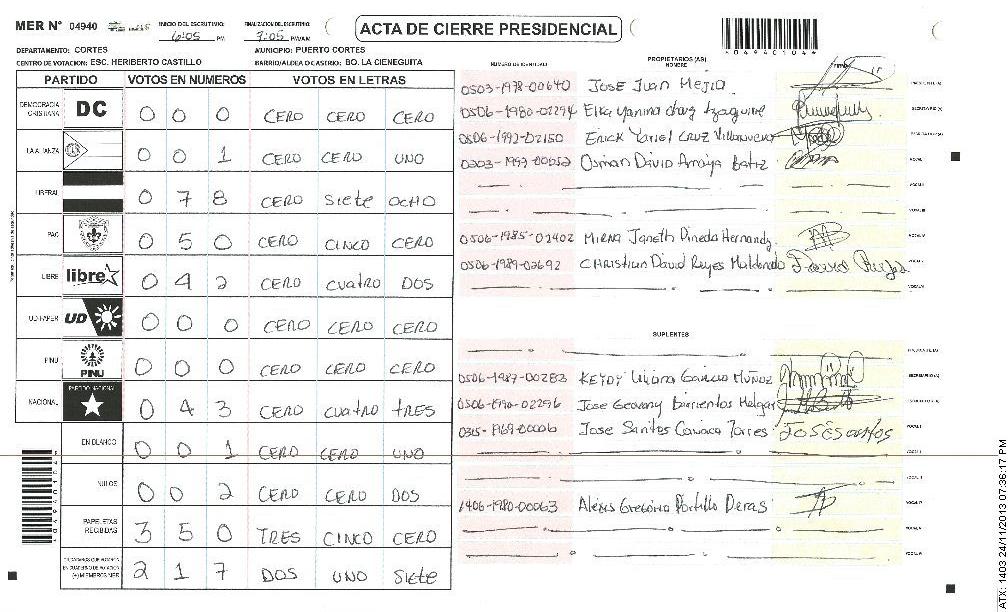 MER N° 04940
INICIO DEL ESCRUTINIO: 6:05 PM
FINALIZACION DEL ESCRUTINIO: 7:05 PM/AM
ACTA DE CIERRE PRESIDENCIAL
DEPARTAMENTO: CORTES
MUNICIPIO: PUERTO CORTES
CENTRO DE VOTACION: ESC. HERIBERTO CASTILLO
BARRIO/ALDEA O CASTRIO: BO. LA CIENEGUITA
PARTIDO VOTOS EN NUMEROS VOTOS EN LETRAS
DEMOCRACIA CRISTIANA DC 0 0 0 CERO CERO CERO
LA ALIANZA 0 0 1 CERO CERO UNO
LIBERAL 0 7 8 CERO SIETE OCHO
PAC 0 5 0 CERO CINCO CERO
LIBRE libre 0 4 2 CERO CUATRO DOS
UD-FAPER UD 0 0 0 CERO CERO CERO
PINU PINU 0 0 0 CERO CERO CERO
NACIONAL PARTIDO NACIONAL 0 4 3 CERO CUATRO TRES
EN BLANCO 0 0 1 CERO CERO UNO
NULOS 0 0 2 CERO CERO DOS
PAPELETAS RECIBIDAS 3 5 0 TRES CINCO CERO
2 1 7 DOS UNO SIETE
NUMERO DE IDENTIDAD
PROPIETARIOS (AS)
NOMBRE
FIRMA
0503-1978-00640 JOSE JUAN MEJIA
0506-1980-02294 Elka Yanina
0506-1992-02150 ERICK Yariel CRUZ Villanueva
OSMAN DAVID Amaya Batiz
0506-1985-02402 MIRNA Janeth Pineda Hernandz
0506-1989-02692 CHRISTIAN David Reyes Maldonado
SUPLENTES
0506-1987-00283 KEYDY Liliana Garcia MUÑOZ
Jose Geovany Barrientos Melgar
0315-1969-00006 Jose Santos Torres
1406-1980-00063 Alexis Gregorio Portillo Deras
ATX: 1403 24/11/2013 07:36:17 PM